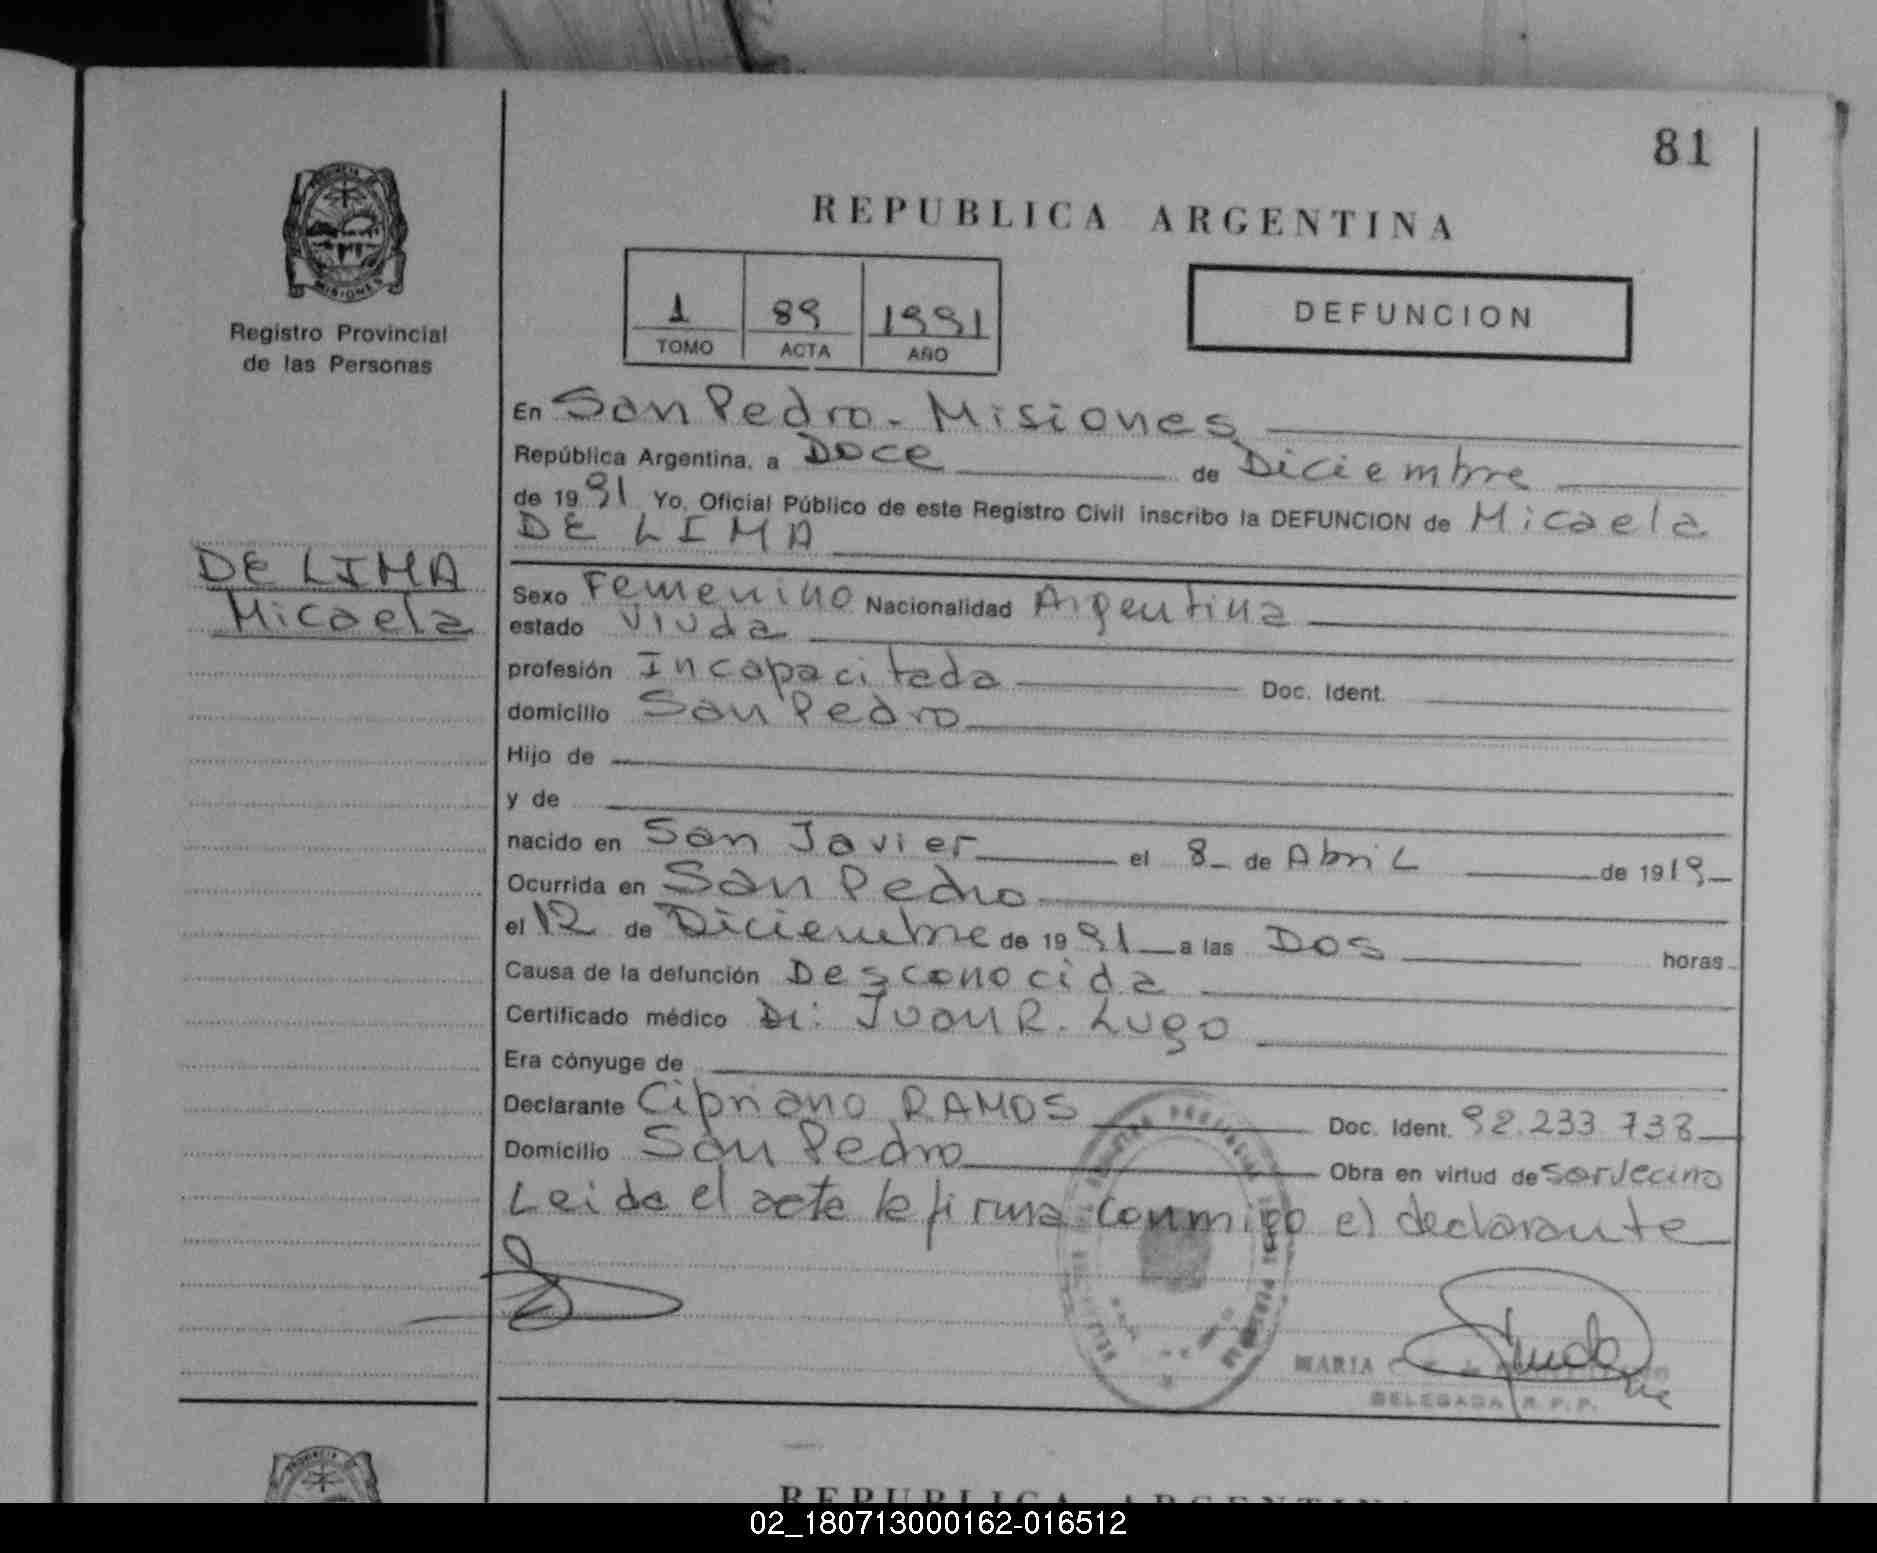 81
PROVINCIA DE
MISIONES
Registro Provincial
de las Personas
REPUBLICA ARGENTINA
1 89 1991
TOMO ACTA AÑO
DEFUNCION
En San Pedro - Misiones
República Argentina, a Doce de Diciembre
de 1991 Yo, Oficial Público de este Registro Civil inscribo la DEFUNCION de Micaela
DE LIMA
DE LIMA
Micaela
Sexo Femenino Nacionalidad Argentina
estado Viuda
profesión Incapacitada Doc. Ident.
domicilio San Pedro
Hijo de
y de
nacido en San Javier el 8 de Abril de 1919
Ocurrida en San Pedro
el 12 de Diciembre de 1991 a las Dos horas
Causa de la defunción Desconocida
Certificado médico Dr: Juan R. Lugo
Era cónyuge de
Declarante Cipriano RAMOS Doc. Ident. 92.233.738
Domicilio San Pedro Obra en virtud de ser vecino
Leida el acta la firma conmigo el declarante
MARIA
DELEGADA R. P. P.
PROVINCIA DE
REPUBLICA ARGENTINA
02_180713000162-016512